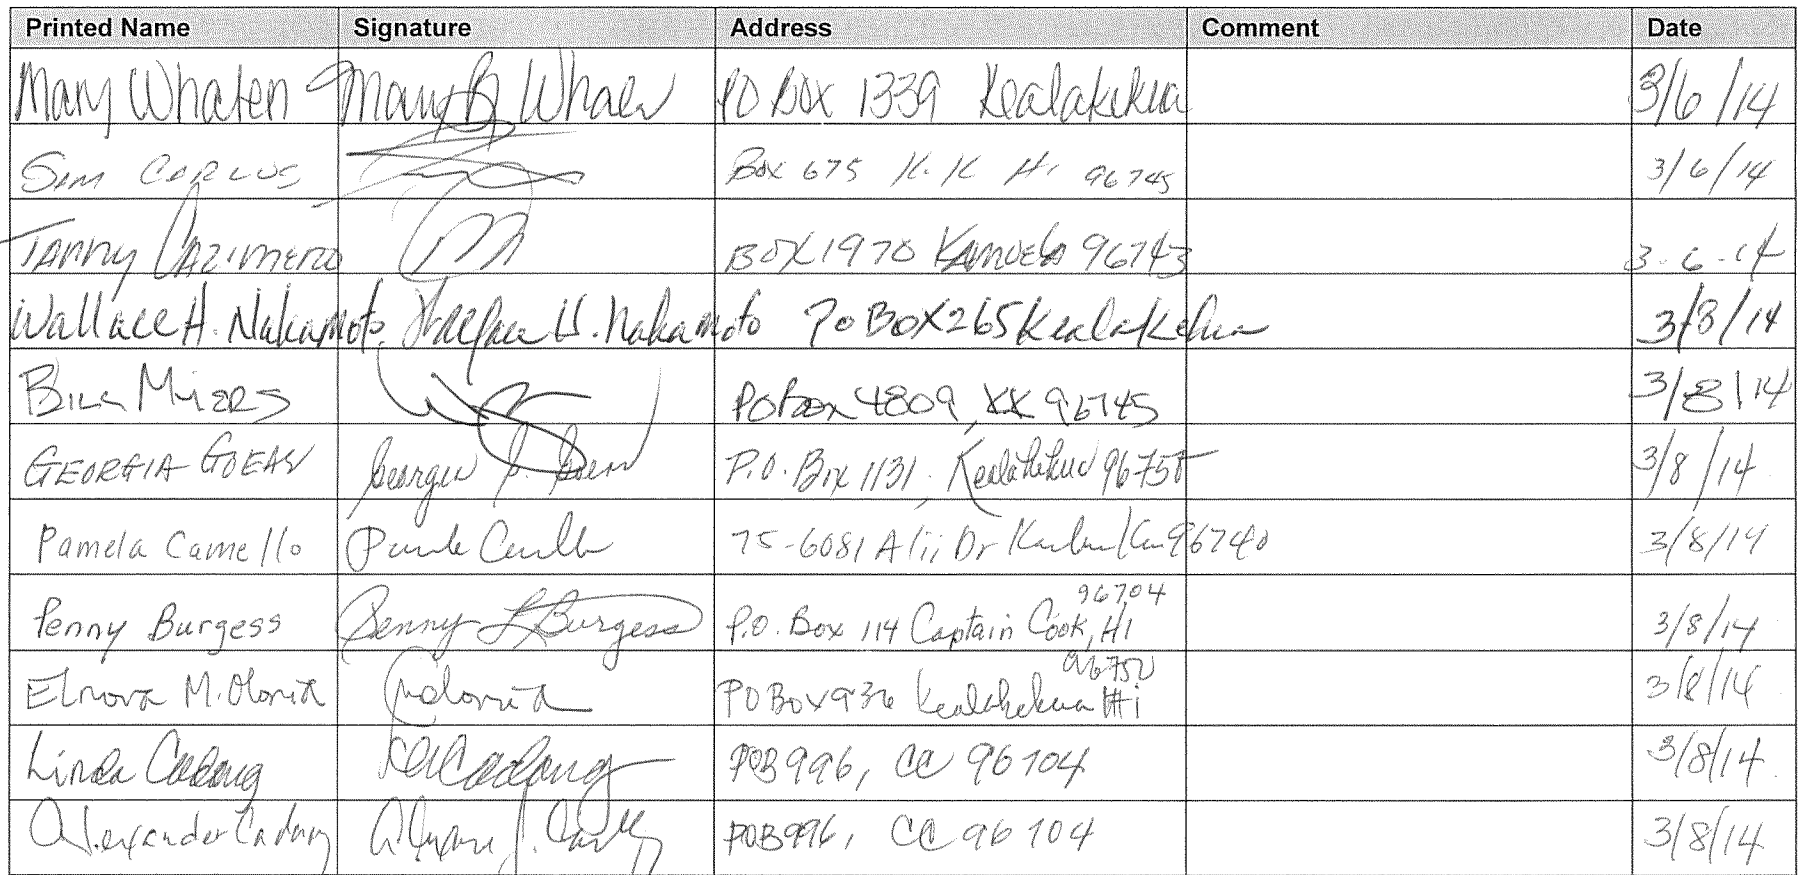 Printed Name Signature Address Comment Date
Mary Whalen Mary B Whalen PO Box 1339 Kealakekua 3/6/14
Sam Box 675 K.K Hi 96745 3/6/14
Tanny Cazimero Box 1970 Kamuela 96743 3-6-14
Wallace H. Nakamoto Wallace H. Nakamoto PO Box 265 Kealakekua 3/8/14
Bill Miers PO Box 4809 KK 96745 3/8/14
Georgia Goeas Georgia Goeas P.O. Box 1131, Kealakekua 96750 3/8/14
Pamela Camello 75-6081 Alii Dr 96740 3/8/14
Penny Burgess Penny L Burgess P.O. Box 114 Captain Cook, HI 96704 3/8/14
M. Oloria PO Box 936 Kealakekua Hi 96750 3/8/14
Linda Cadang Cadang POB 996, CC 96704 3/8/14
Alexander Cadang POB 996, CC 96704 3/8/14